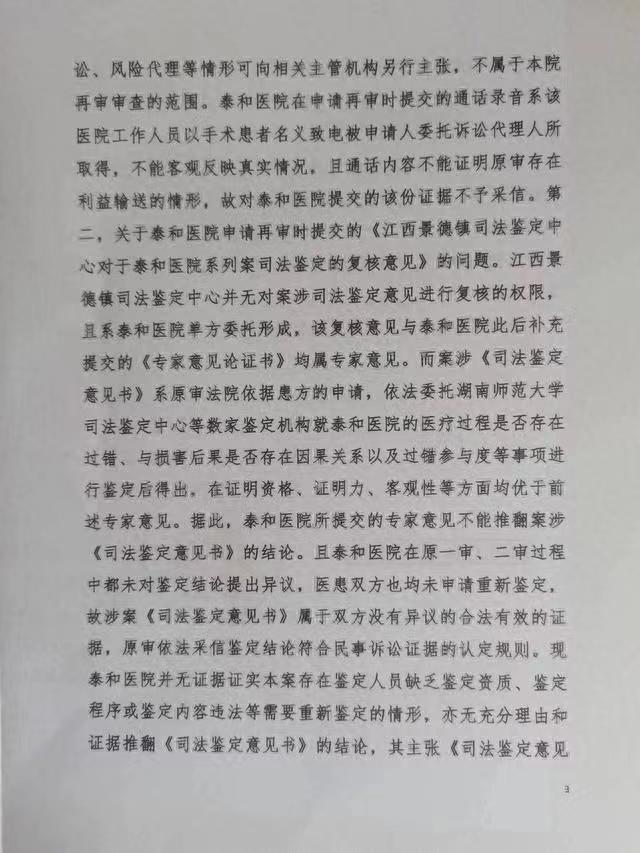 讼、风险代理等情形可向相关主管机构另行主张，不属于本院
再审审查的范围。泰和医院在申请再审时提交的通话录音系该
医院工作人员以手术患者名义致电被申请人委托诉讼代理人所
取得，不能客观反映真实情况，且通话内容不能证明原审存在
利益输送的情形，故对泰和医院提交的该份证据不予采信。第
二，关于泰和医院申请再审时提交的《江西景德镇司法鉴定中
心对于泰和医院系列案司法鉴定的复核意见》的问题。江西景
德镇司法鉴定中心并无对案涉司法鉴定意见进行复核的权限，
且系泰和医院单方委托形成，该复核意见与泰和医院此后补充
提交的《专家意见论证书》均属专家意见。而案涉《司法鉴定
意见书》系原审法院依据患方的申请，依法委托湖南师范大学
司法鉴定中心等数家鉴定机构就泰和医院的医疗过程是否存在
过错、与损害后果是否存在因果关系以及过错参与度等事项进
行鉴定后得出，在证明资格、证明力、客观性等方面均优于前
述专家意见。据此，泰和医院所提交的专家意见不能推翻案涉
《司法鉴定意见书》的结论。且泰和医院在原一审、二审过程
中都未对鉴定结论提出异议，医患双方也均未申请重新鉴定，
故涉案《司法鉴定意见书》属于双方没有异议的合法有效的证
据，原审依法采信鉴定结论符合民事诉讼证据的认定规则。现
泰和医院并无证据证实本案存在鉴定人员缺乏鉴定资质、鉴定
程序或鉴定内容违法等需要重新鉴定的情形，亦无充分理由和
证据推翻《司法鉴定意见书》的结论，其主张《司法鉴定意见
3